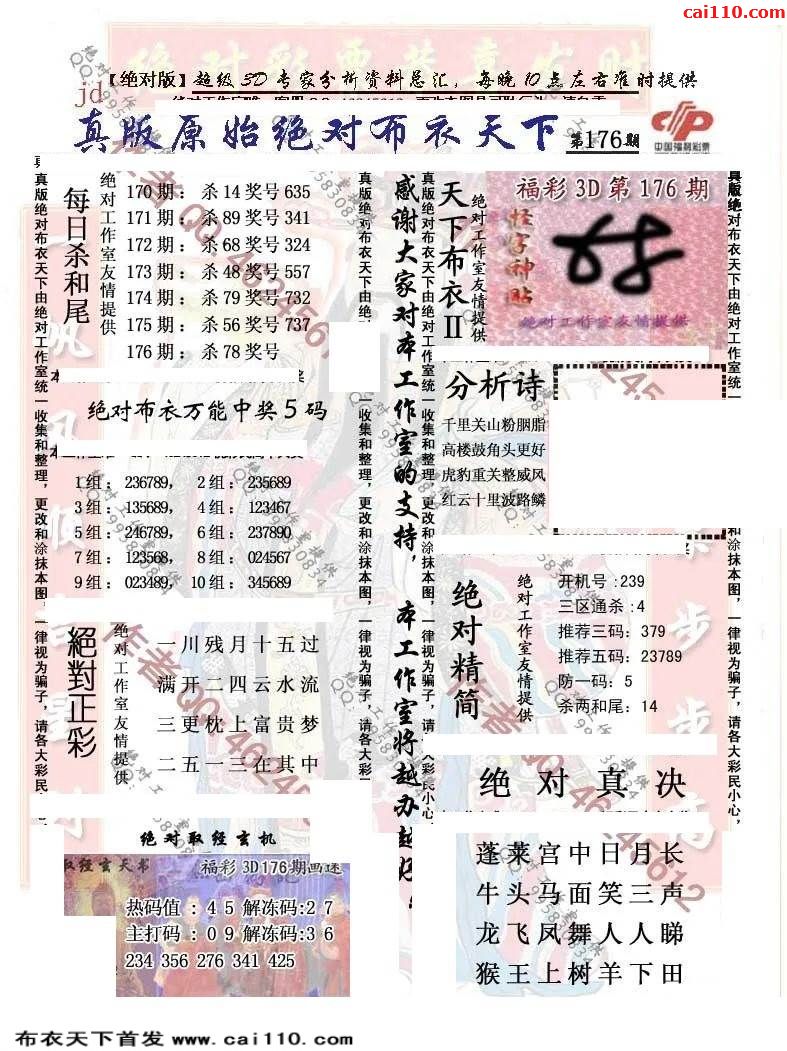 cai110.com
【绝对版】超级3D专家分析资料总汇，每晚10点左右准时提供
jd
真版原始绝对布衣天下
第176期
中国福利彩票
每日杀和尾
绝对工作室友情提供
170期：杀14奖号635
171期：杀89奖号341
172期：杀68奖号324
173期：杀48奖号557
174期：杀79奖号732
175期：杀56奖号737
176期：杀78奖号
绝对布衣万能中奖5码
1组：236789， 2组：235689
3组：135689， 4组：123467
5组：246789， 6组：237890
7组：123568， 8组：024567
9组：023489， 10组：345689
絕對正彩
绝对工作室友情提供
一川残月十五过
满开二四云水流
三更枕上富贵梦
二五一三在其中
绝对取经玄机
取经玄天书
福彩3D176期画迷
热码值：45解冻码:27
主打码：09解冻码:36
234 356 276 341 425
真版绝对布衣天下由绝对工作室统一收集和整理，更改和涂抹本图，一律视为骗子，请各大彩民小心，
真版绝对布衣天下由绝
收集和整理，更改和涂抹本图，一律视为骗子，请各大彩
感谢大家对本工作室的支持，本工作室将越办越好
真版绝对布衣天下由绝对工作室统一收集和整理，更改和涂抹本图，一律视为骗子，请各大彩民小心，
天下布衣II
绝对工作室友情提供
福彩3D第176期
怪字神贴
绝对工作室友情提供
分析诗
千里关山粉胭脂
高楼鼓角头更好
虎豹重关整威风
红云十里波路鳞
绝对精简
绝对工作室友情提供
开机号:239
三区通杀:4
推荐三码：379
推荐五码：23789
防一码：5
杀两和尾：14
绝对真决
蓬莱宫中日月长
牛头马面笑三声
龙飞凤舞人人睇
猴王上树羊下田
真版绝对布衣天下由绝对工作室统一
和涂抹本图，一律视为骗子，请各大彩民小心，
作者QQ:46245612
布衣天下首发 www.cai110.com